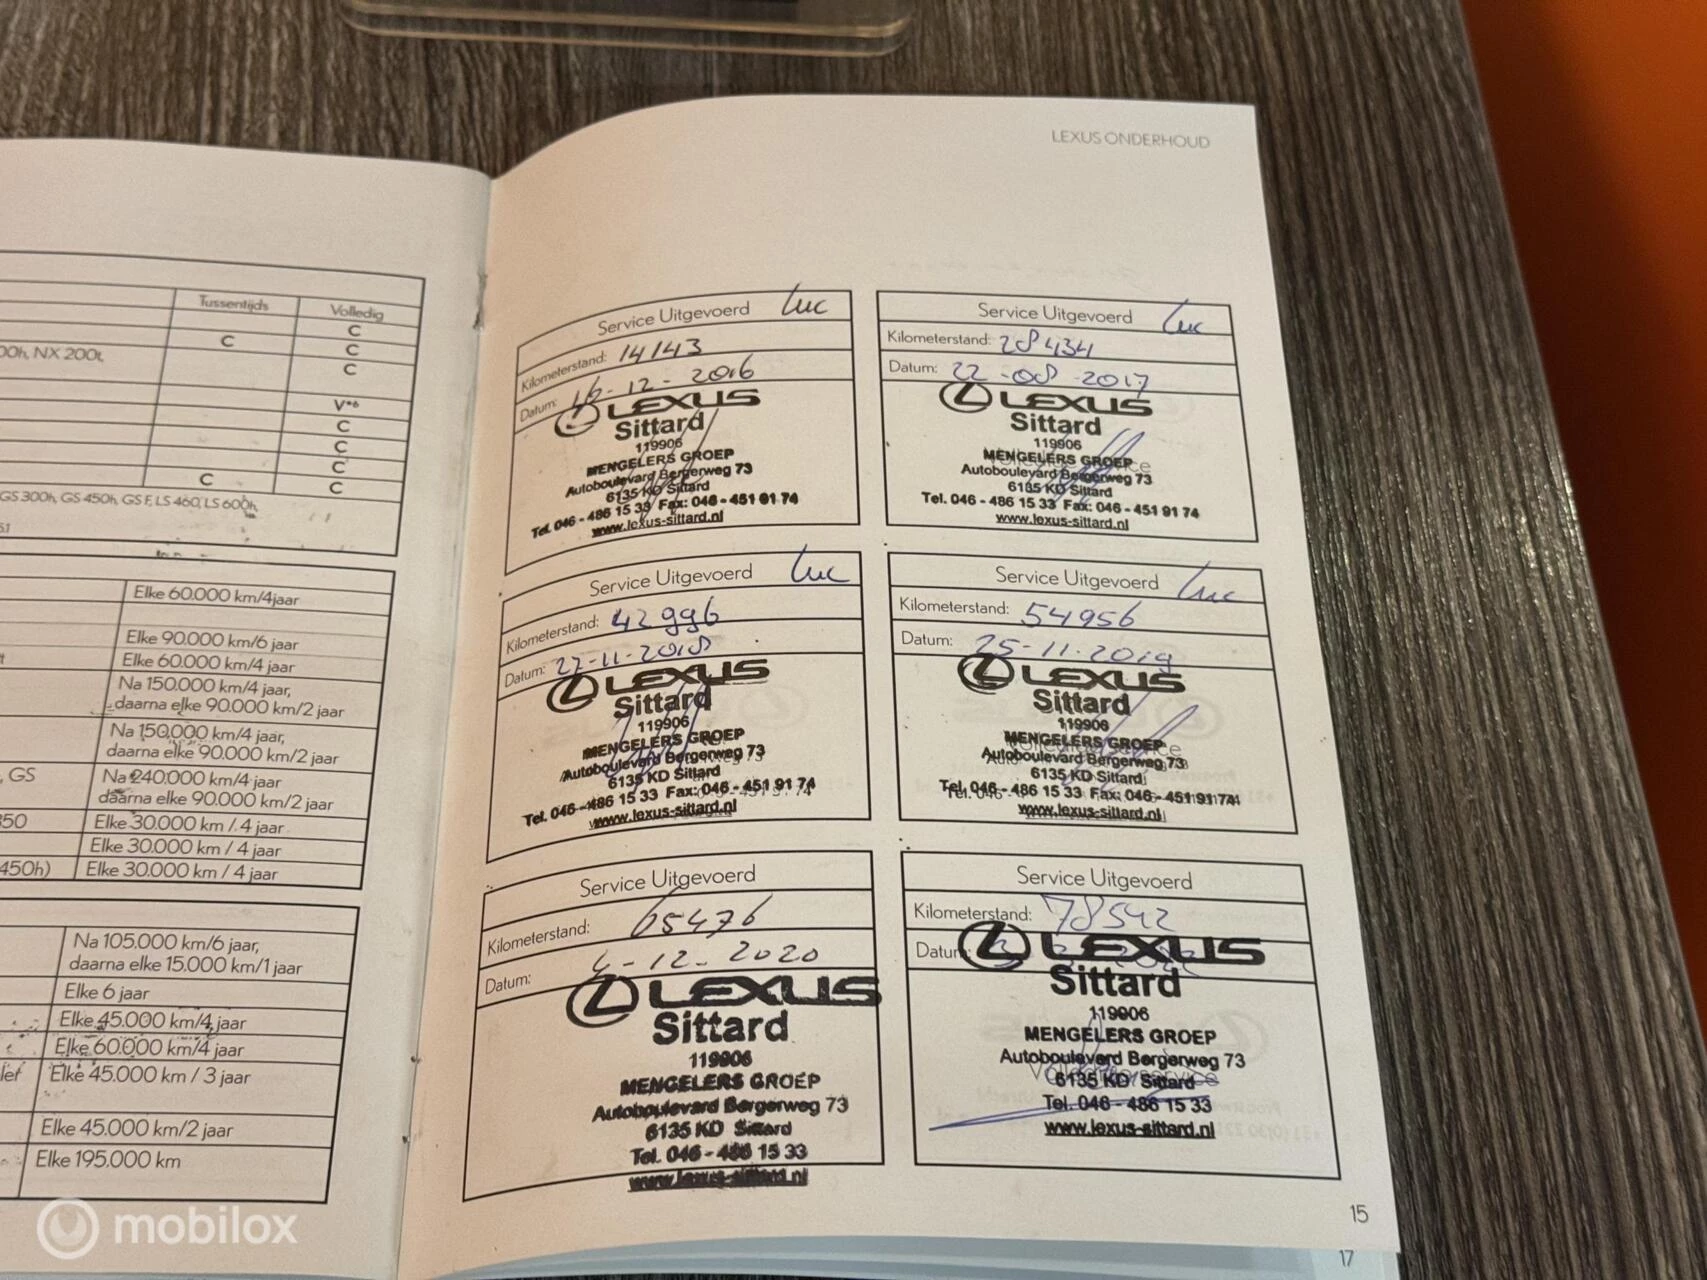 LEXUS ONDERHOUD
Tussentijds Volledig
C
C C
00h, NX 200t, C
V*6
C
C
C
C C
GS 300h, GS 450h, GS F, LS 460, LS 600h,
Elke 60.000 km/4jaar
Elke 90.000 km/6 jaar
Elke 60.000 km/4 jaar
Na 150.000 km/4 jaar,
daarna elke 90.000 km/2 jaar
Na 150.000 km/4 jaar,
daarna elke 90.000 km/2 jaar
, GS Na 240.000 km/4 jaar
daarna elke 90.000 km/2 jaar
350 Elke 30.000 km / 4 jaar
Elke 30.000 km / 4 jaar
450h) Elke 30.000 km / 4 jaar
Na 105.000 km/6 jaar,
daarna elke 15.000 km/1 jaar
Elke 6 jaar
Elke 45.000 km/4 jaar
Elke 60.000 km/4 jaar
Elke 45.000 km / 3 jaar
Elke 45.000 km/2 jaar
Elke 195.000 km
Service Uitgevoerd Luc
Kilometerstand: 14143
Datum: 16-12-2016
LEXUS
Sittard
119906
MENGELERS GROEP
Autoboulevard Bergerweg 73
6135 KD Sittard
Tel. 046 - 486 15 33 Fax: 046 - 451 91 74
www.lexus-sittard.nl
Service Uitgevoerd Luc
Kilometerstand: 28434
Datum: 22-08-2017
LEXUS
Sittard
119906
MENGELERS GROEP
Autoboulevard Bergerweg 73
6135 KD Sittard
Tel. 046 - 486 15 33 Fax: 046 - 451 91 74
www.lexus-sittard.nl
Service Uitgevoerd Luc
Kilometerstand: 42996
Datum: 22-11-2018
LEXUS
Sittard
119906
MENGELERS GROEP
Autoboulevard Bergerweg 73
6135 KD Sittard
Tel. 046 - 486 15 33 Fax: 046 - 451 91 74
www.lexus-sittard.nl
Service Uitgevoerd Luc
Kilometerstand: 54956
Datum: 25-11-2019
LEXUS
Sittard
119906
MENGELERS GROEP
Autoboulevard Bergerweg 73
6135 KD Sittard
Tel. 046 - 486 15 33 Fax: 046 - 451 91 74
www.lexus-sittard.nl
Service Uitgevoerd
Kilometerstand: 65476
Datum: 4-12-2020
LEXUS
Sittard
119906
MENGELERS GROEP
Autoboulevard Bergerweg 73
6135 KD Sittard
Tel. 046 - 486 15 33
www.lexus-sittard.nl
Service Uitgevoerd
Kilometerstand: 78542
Datum:
LEXUS
Sittard
119906
MENGELERS GROEP
Autoboulevard Bergerweg 73
6135 KD Sittard
Tel. 046 - 486 15 33
www.lexus-sittard.nl
15
17
mobilox